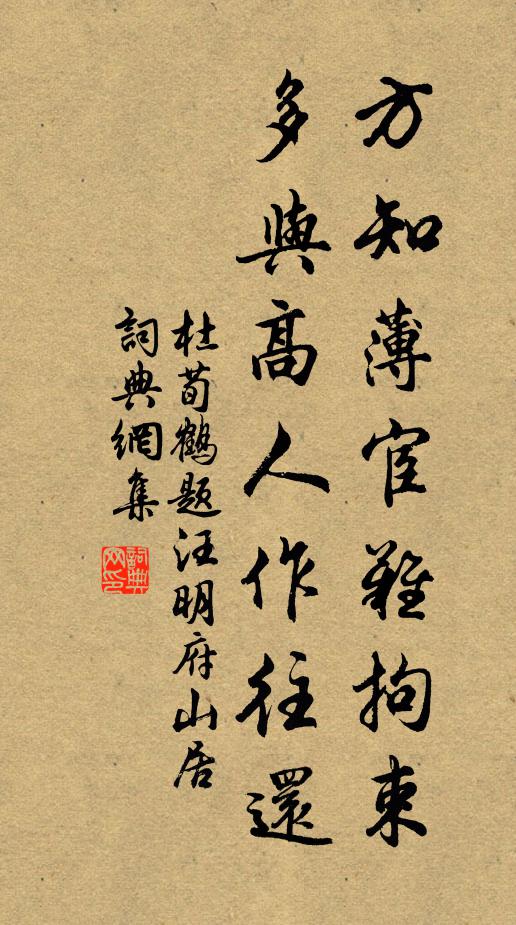 方知薄宦難拘束
多與高人作往還
杜荀鶴題汪明府山居
詞典網集
詞典网印